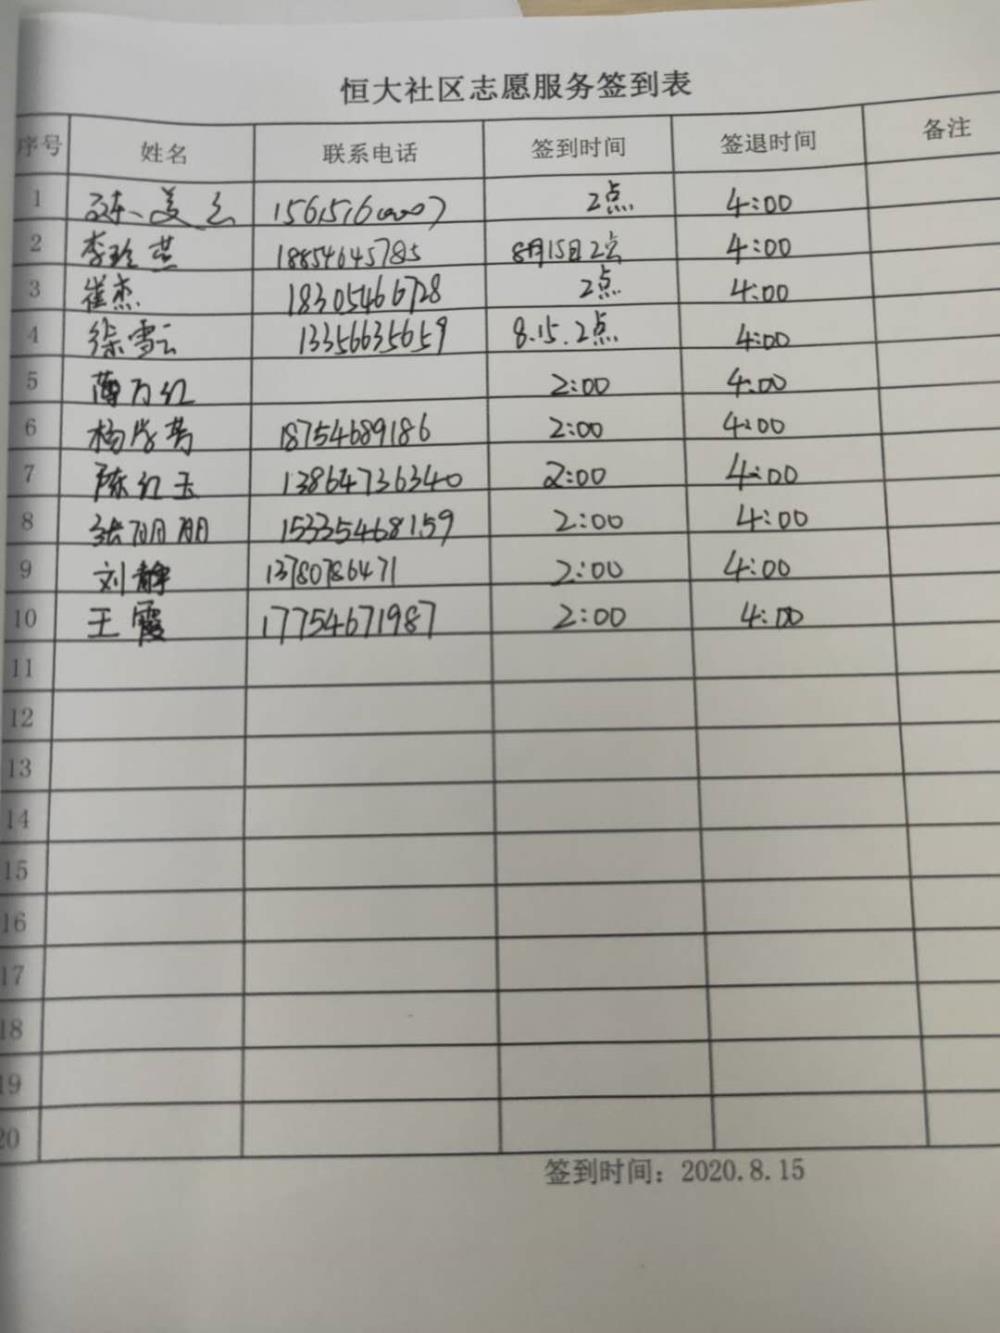 恒大社区志愿服务签到表
序号 姓名 联系电话 签到时间 签退时间 备注
1 美 2点 4:00
2 李玲燕 18854645785 8月15日2点 4:00
3 崔杰 18305466728 2点 4:00
4 徐雪云 13356635659 8.15.2点 4:00
5 薄万红 2:00 4:00
6 杨 芳 18754689186 2:00 4:00
7 陈红玉 13864736340 2:00 4:00
8 张丽丽 15335468159 2:00 4:00
9 刘静 13780786471 2:00 4:00
10 王霞 17754671987 2:00 4:00
11
12
13
14
15
16
17
18
19
20
签到时间：2020.8.15